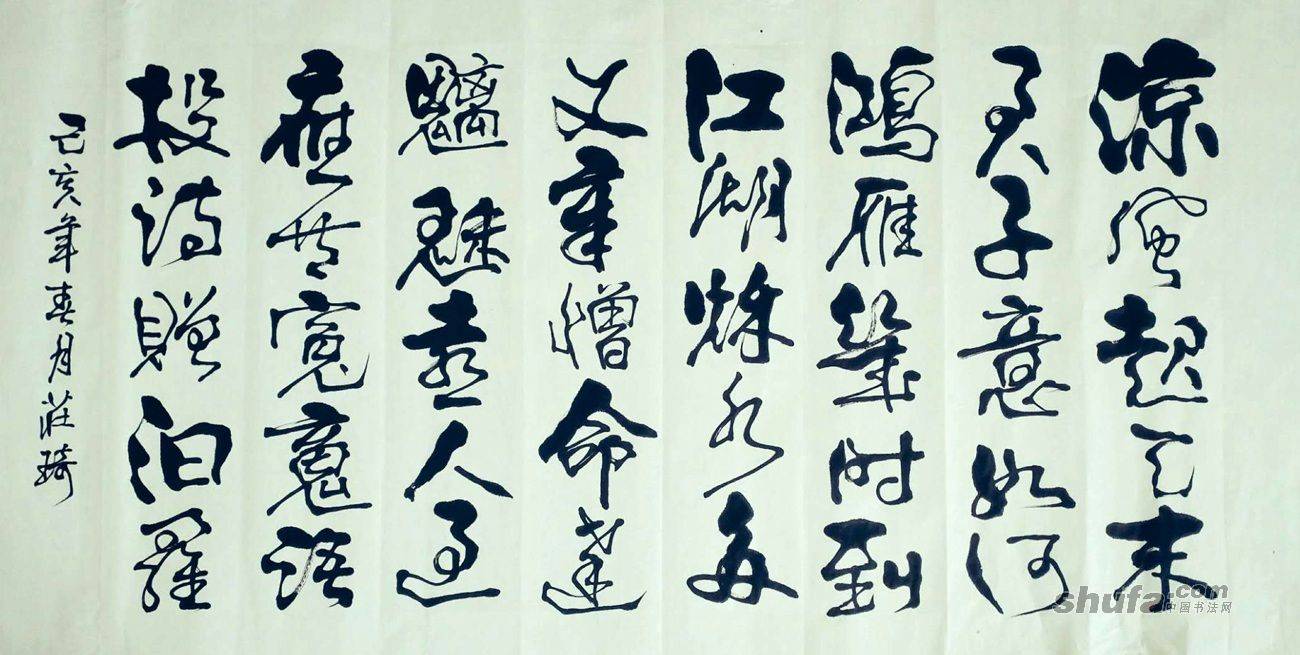 涼風起天末
君子意如何
鴻雁幾时到
江湖秌水多
文章憎命達
魑魅喜人過
應共冤魂語
投詩贈汨羅
己亥年春月莊琦
shufa.com
中国书法网